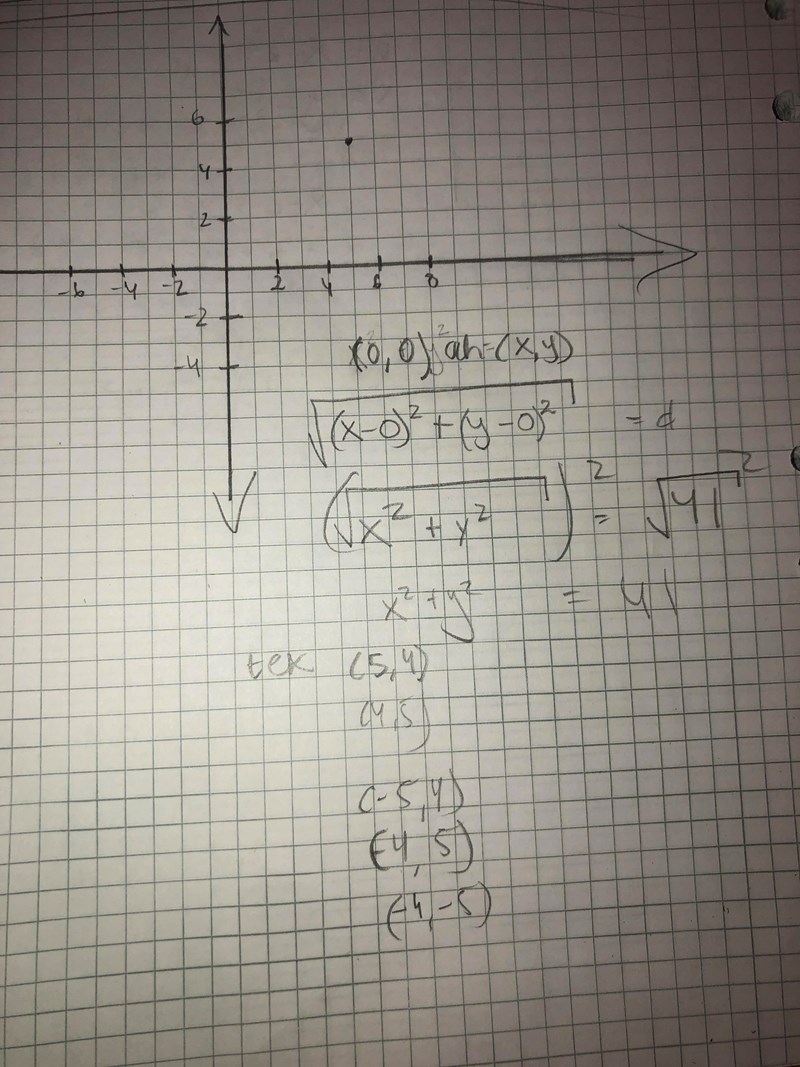 6
4
2
-6 -4 -2 2 4 6 8
-2
-4
(0,0) och (x,y)
√(x-0)² + (y-0)² = d
(√x² + y²)² = √41²
x² + y² = 41
tex (5,4)
(4,5)
(-5,4)
(-4,5)
(-4,-5)